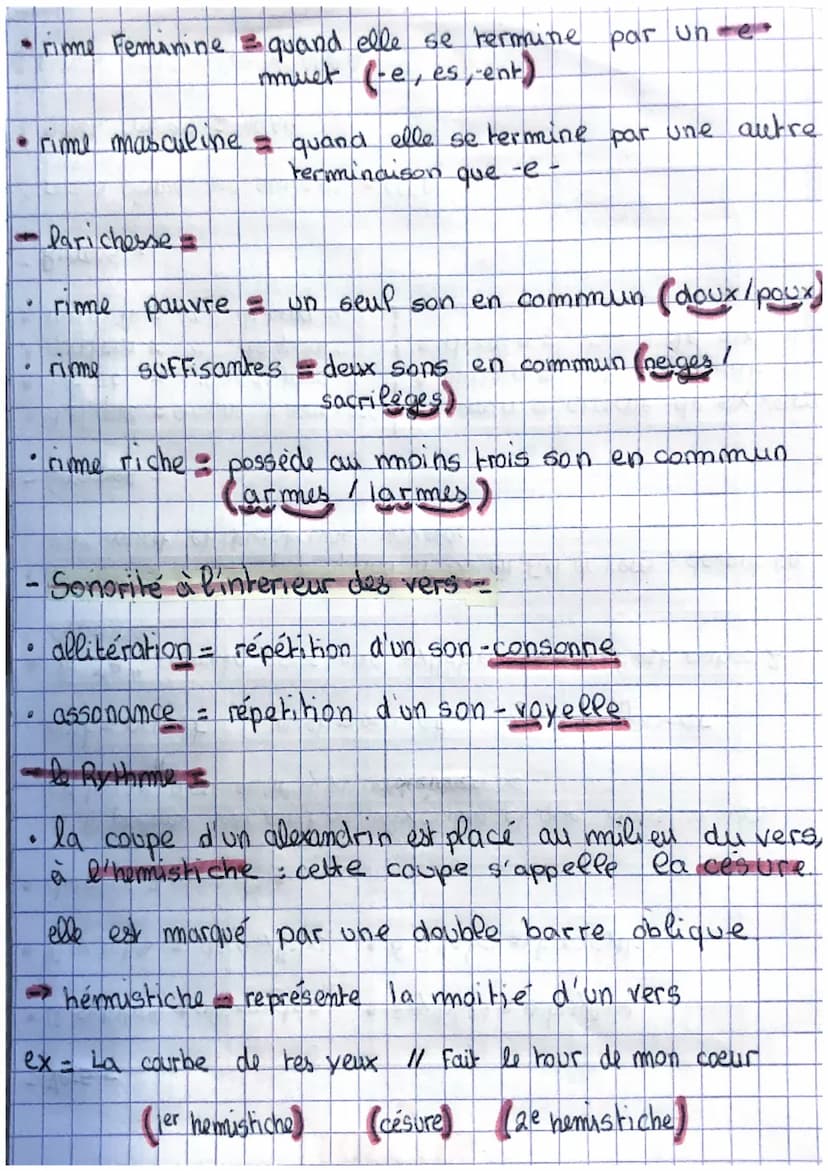 • rime Feminine = quand elle se termine par un -e-
muet (-e, es, -ent)
• rime masculine = quand elle se termine par une autre
terminaison que -e-
- la richesse =
• rime pauvre = un seul son en commun (doux/poux)
• rime suffisantes = deux sons en commun (neiges /
sacrilèges)
• rime riche = possède au moins trois son en commun
(armes / larmes)
- Sonorité à l'interieur des vers =
• allitération = répétition d'un son-consonne
• assonance = répetition d'un son-voyelle
- le Rythme =
• la coupe d'un alexandrin est placé au milieu du vers,
à l'hemistiche : cette coupe s'appelle la césure.
elle est marqué par une double barre oblique
→ hémistiche = représente la moitié d'un vers
ex = La courbe de tes yeux // Fait le tour de mon coeur
(1er hemistiche) (césure) (2e hemistiche)